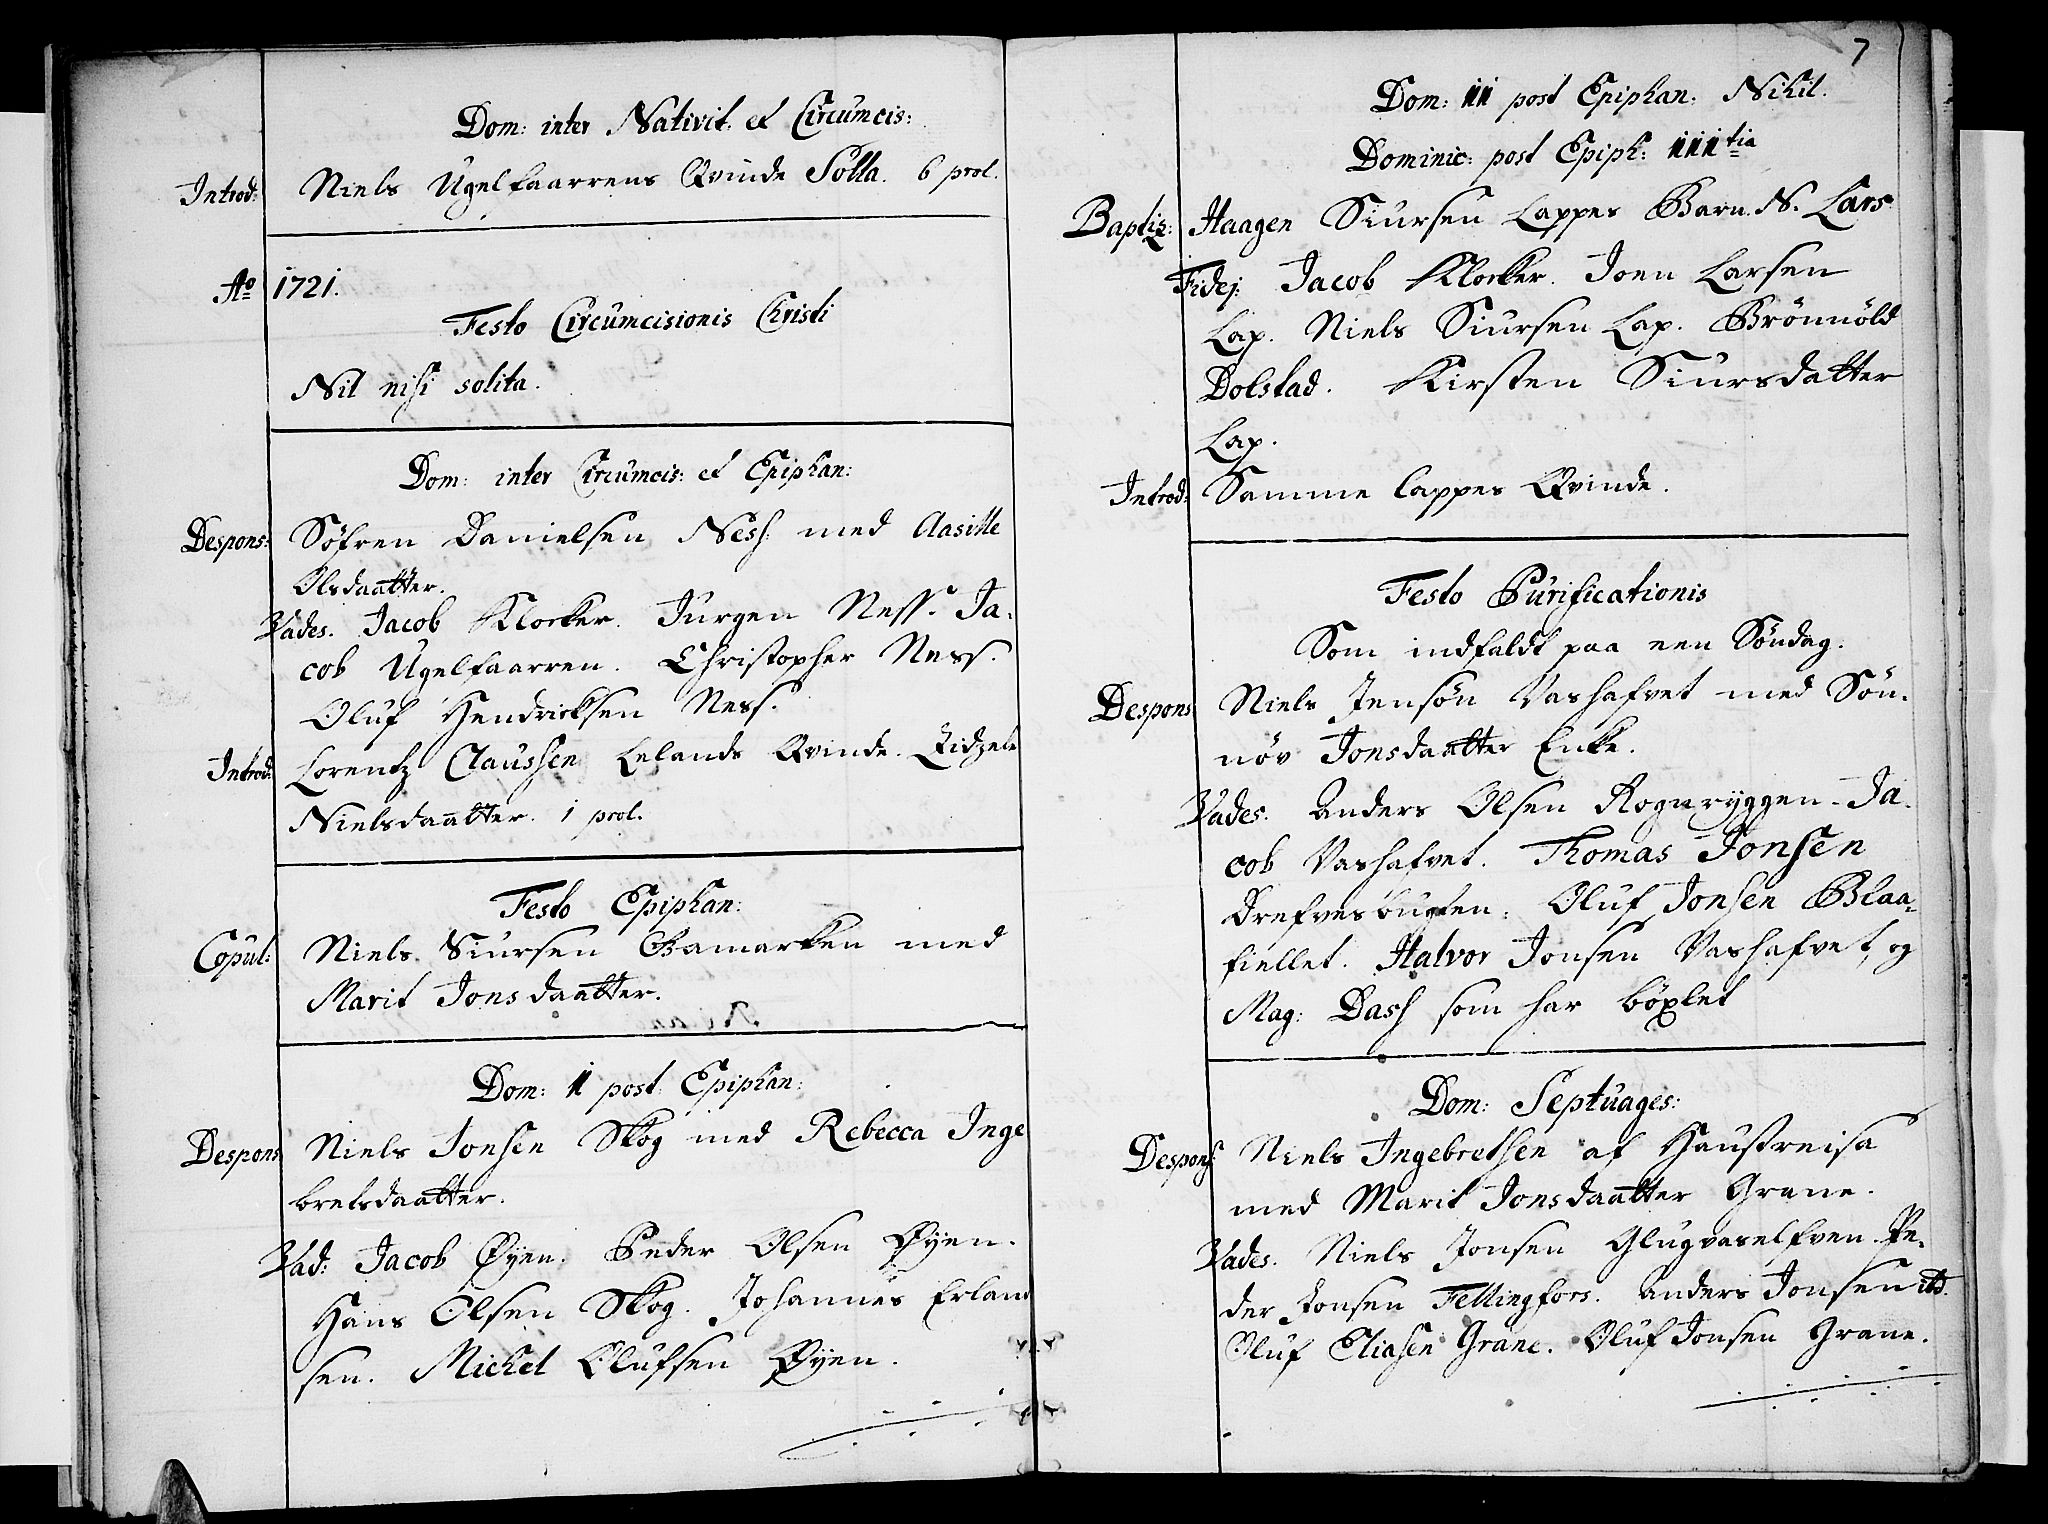 Dom: inter Nativit: et Circumcis:
Introd: Niels Ugelfaarens Qvinde Solla. 6 prol.
Ao 1721.
Festo Circumcisionis Christi
Nil nisi solita.
Dom: inter Circumcis: et Epiphan:
Despons: Söfren Danielsen Ness: med Aasille
Olsdaatter.
Vades. Jacob Klocker. Jürgen Ness. Ja-
cob Ugelfaarren. Christopher Ness.
Oluf Hendricksen Ness.
Introd: Lorentz Claussen Lelands Qvinde Zidzele
Nielsdaatter. 1 prol.
Festo Epiphan:
Copul: Niels Siursen Gamarken med
Marit Jonsdaatter.
Dom: 1 post Epiphan:
Despons Niels Jonsen Skog med Rebecca Inge
bretsdaatter.
Vad: Jacob Øyen. Peder Olsen Øyen.
Hans Olsen Skog. Johannes Erland
sen. Michel Olufsen Øyen.
7
Dom: II post Epiphan: Nihil.
Dominic: post Epiph: III tia
Baptiz: Haagen Siursen Lappes Barn. N. Lars
Fidej: Jacob Klocker. Joen Larsen
Lap. Niels Siursen Lap. Brönnöld
Dolstad. Kirsten Siursdatter
Lap.
Introd: Samme Lappes Qvinde.
Festo Purificationis
Som indfaldt paa een Söndag.
Despons Niels Jensön Vashafvet med Sön-
növ Jonsdaatter Enke.
Vades. Anders Olsen Rognryggen. Ja-
cob Vashafvet. Thomas Jonsen
Drefvesbugten: Oluf Jonsen Blaa-
fiellet. Halvor Jonsen Vashafvet, og
Mag: Dass som har böxlet
Dom: Septuages:
Despons: Niels Ingebretsen af Haustreisa
med Marit Jonsdaatter Grane.
Vades. Niels Jonsen Glugvaselfven Pe-
der Jonsen Fellingfors. Anders Jonsen ibd.
Oluf Eliasen Grane. Oluf Jonsen Grane.